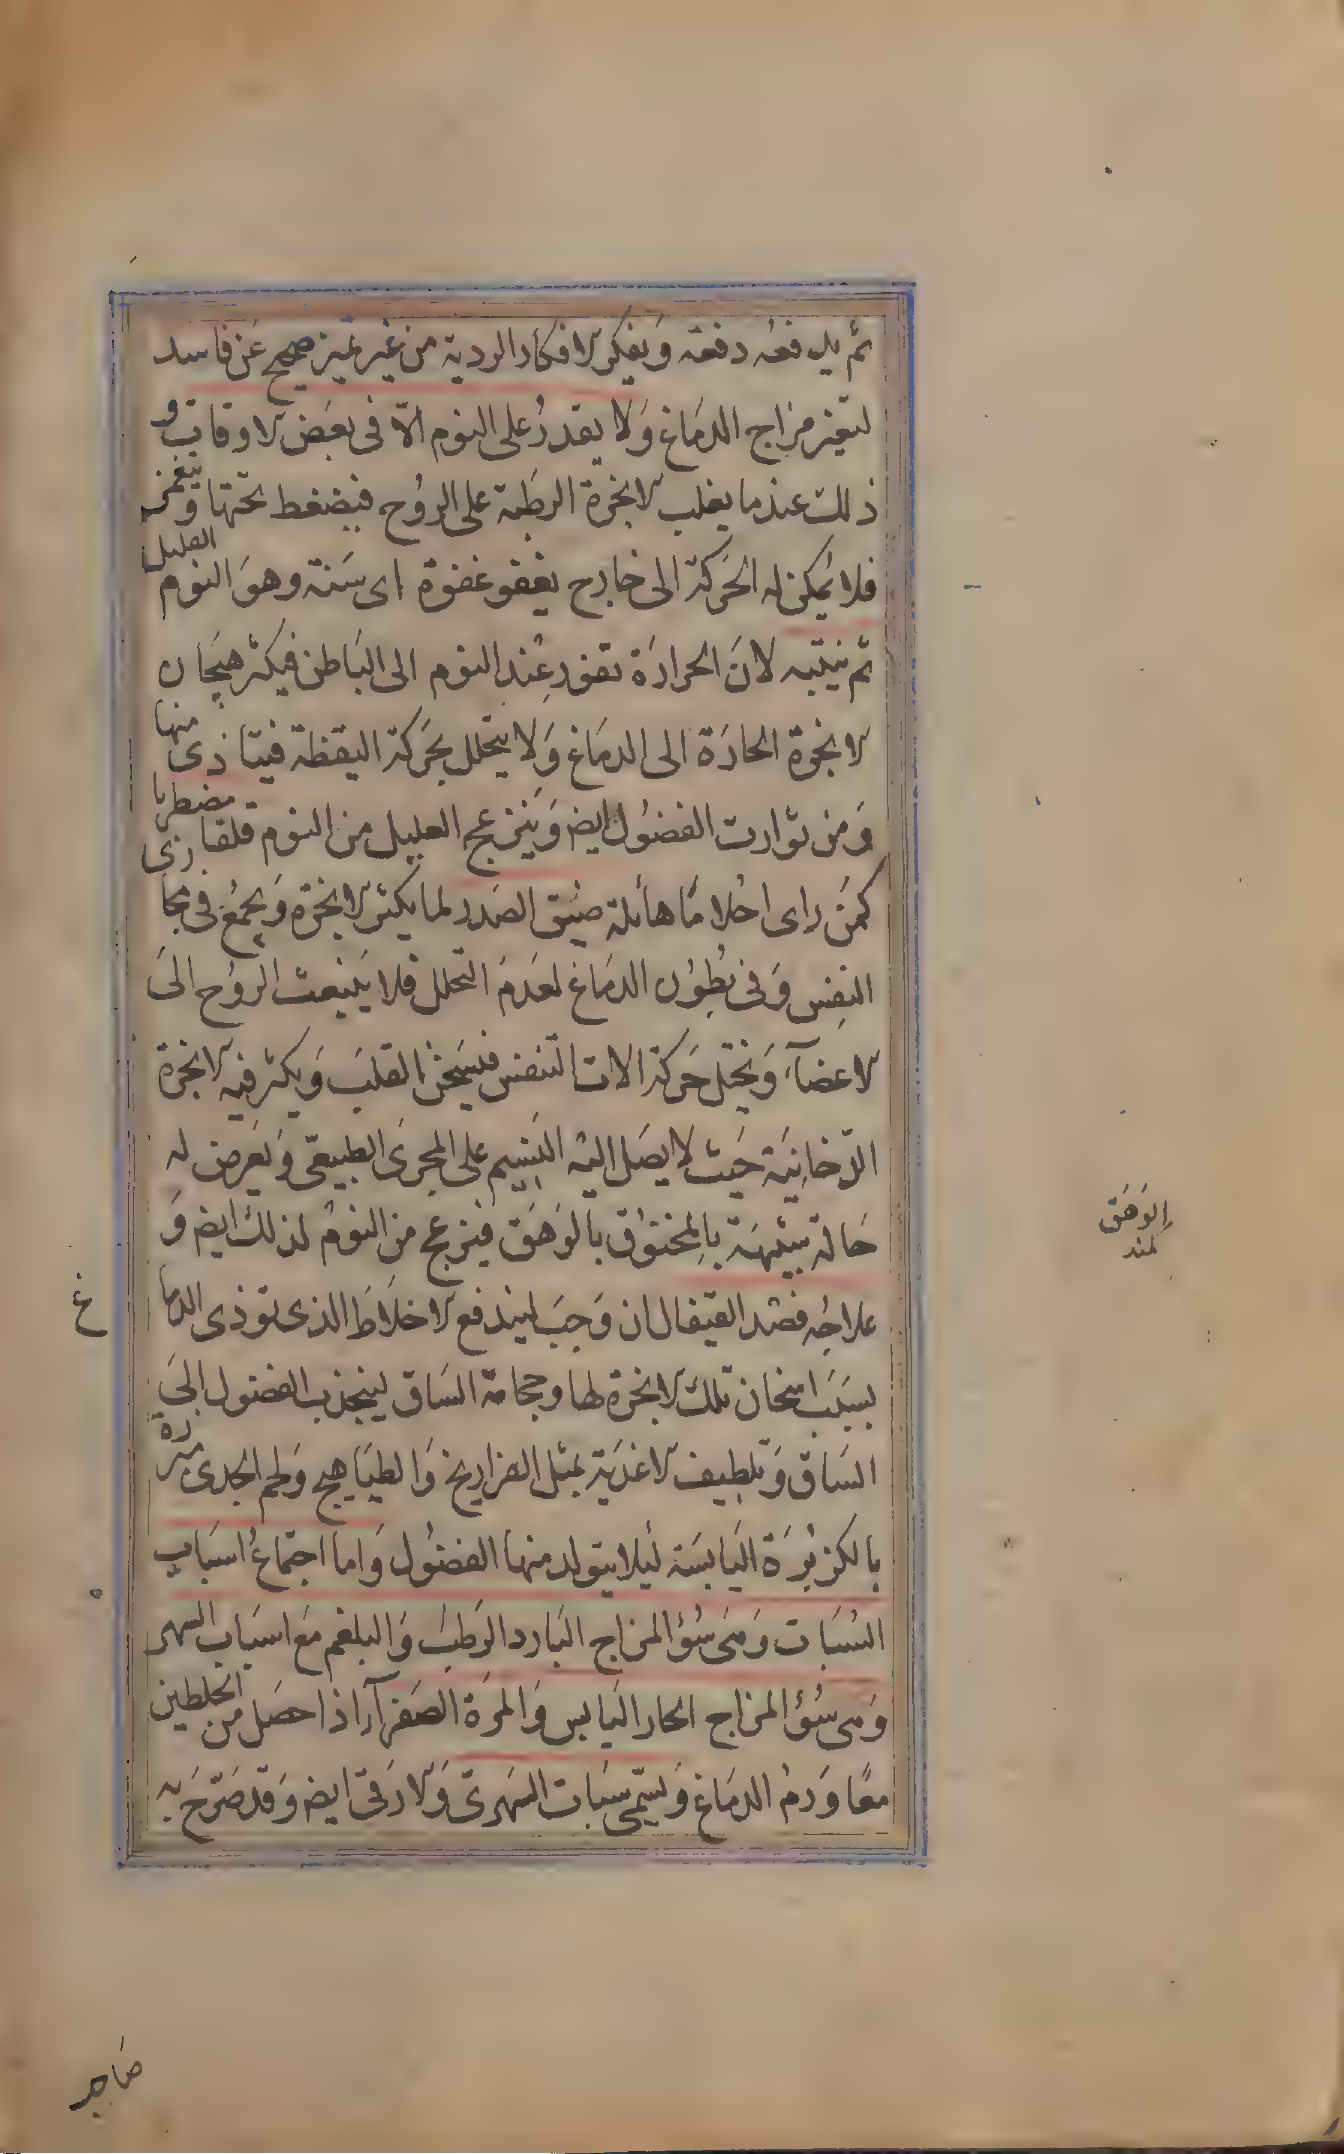 ثم يدفعه دفعة وَيفكر الافكار الردية من غير تميز صحيح عَن فاسد
لتغير مزاج الدمَاغ وَلا يقدرُ على النوم الّا فى بعَض الاوقات و
ذلك عندما يغلب الابخرة الرطبة على الروُح فينضغط تحتها وينغمز
فلا يُمكن له الحَركة الى خارج يغفو غفوة اى سَنة وهوَ النوم القليل
ثم ينتبه لانَ الحرارَة تغور عِند النوم الى البَاطن فيكثر هيَجان
الابخرة الحارَة الى الدمَاغ وَلا يتحلل بحَركة اليقظة فيتاذى منها
وَمن توارت الفضوُل ايضر وَينزعج العليل من النوم قلقا مضطربا
كمنَ راى احُلامًا هائلة ضيّق الصَدر لما يكثر الابخرة وَيجمُع فى مجارى
النفِس وَفى بطُوُن الدمَاغ لعَدمَ التحلل فلا يَنبعث الروُح الىَ
الاعضآء وَيختل حَركة الات التنفس فيسَخن القلبَ وَيكثر فيه الابخرة
الدّخانِيَة حَيث لا يصَل اليْه النَسِيم على المجرىَ الطبيعَى وَيعَرض له
حَالة شبَيهَة باِلمخنوُق بالوَهَق فينزعج من النومُ لذلك ايضر وَ
علاجُه فصَد القيفال ان وَجبَ ليندفع الاخلَاط الذى توذى الدما
غ
بسَبَب اسخان تلك الابخرة لها وحجامة السَاق لينجذب الفضول الىَ
السَاق وَتلطيف الاغذيَة بمثل الفزاريخ وَالطيَاهيج وَلحم الجدى مبزرة
بالكزبُرَة اليَابسَة ليلا يتولد منها الفضوُل وَاما اجتماعُ اسبَاب
السُبَات وَهىَ سُؤ المزاج البَارد الرَطبَ وَالبلغم مَع اسبَاب السهر
وَهى سُؤ المزاج الحار اليَابس وَالمرَة الصَفرآء اذا حصَل من الخلطين
معًا وَرمُ الدمَاغ وَيسَمّى سبَات السَهرىّ وَالارَقى ايضر وَقدَ صَرّحَ به
الوَهَق
كمند
صَاحِب